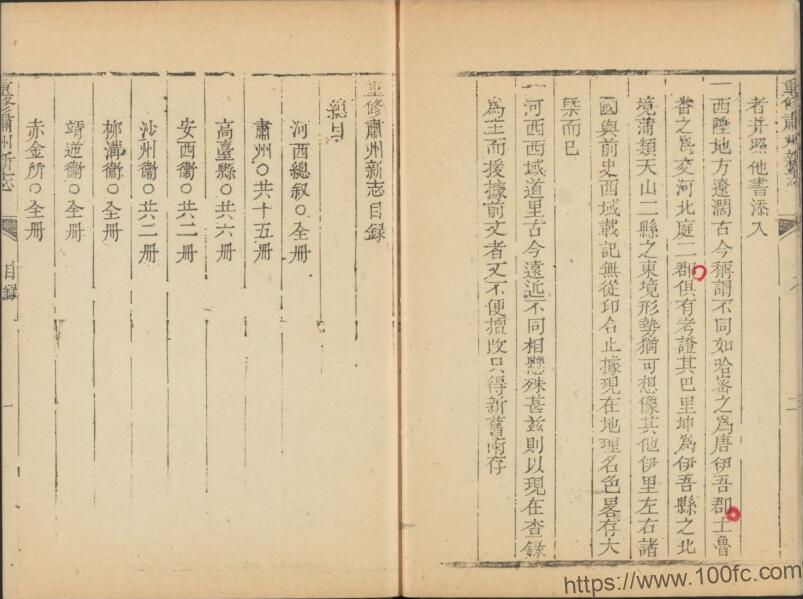 者并照他書添入
一西陲地方遼濶古今稱謂不同如哈密之為唐伊吾郡土魯
番之為交河北庭二郡俱有考證其巴里坤為伊吾縣之北
境蒲類天山二縣之東境形勢猶可想像其他伊里左右諸
國與前史西域載記無從印合止據現在地理名色畧存大
槩而已
一河西西域道里古今遠近不同相懸殊甚兹則以現在查錄
為主而援據前文者又不便擅改只得新舊兩存
重修肅州新志
二
重修肅州新志目錄
總目
河西總叙○全册
肅州○共十五册
高臺縣○共六册
安西衞○共二册
沙州衞○共二册
柳溝衞○全册
靖逆衞○全册
赤金所○全册
重修肅州新志
目錄
一
https://www.100fc.com